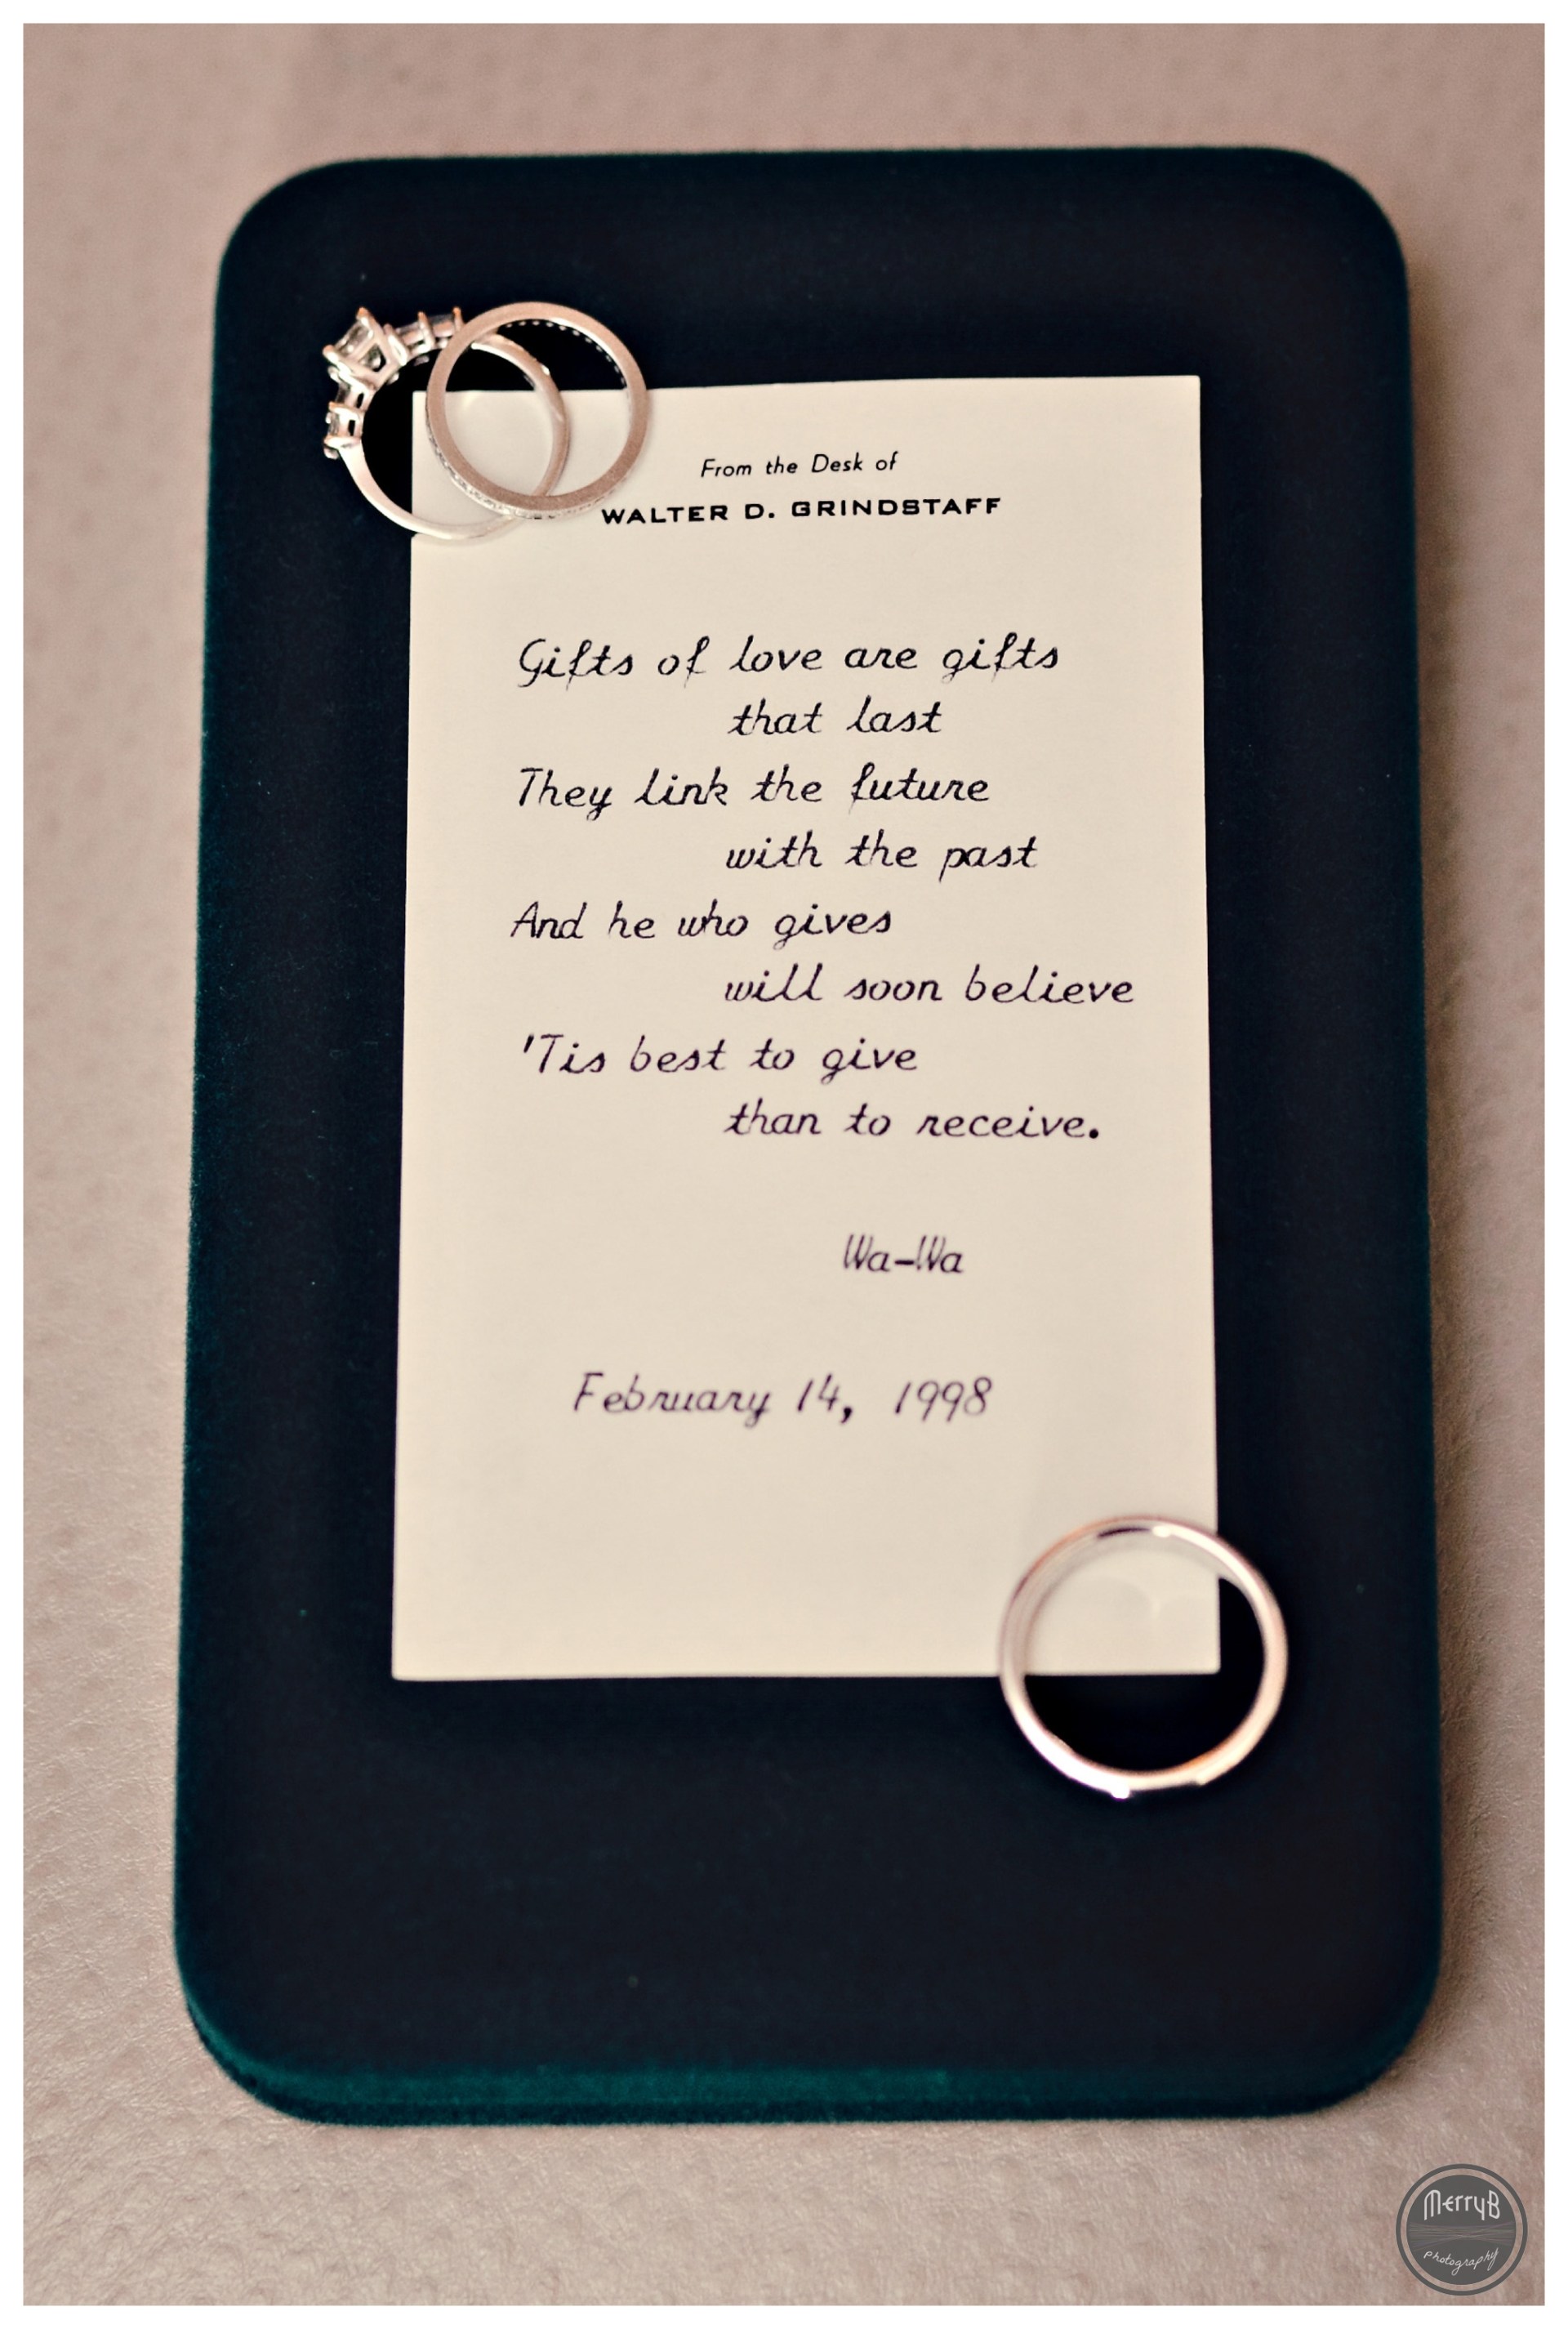 From the Desk of
WALTER D. GRINDSTAFF
Gifts of love are gifts
that last
They link the future
with the past
And he who gives
will soon believe
'Tis best to give
than to receive.
Wa-Wa
February 14, 1998
MerryB
photography